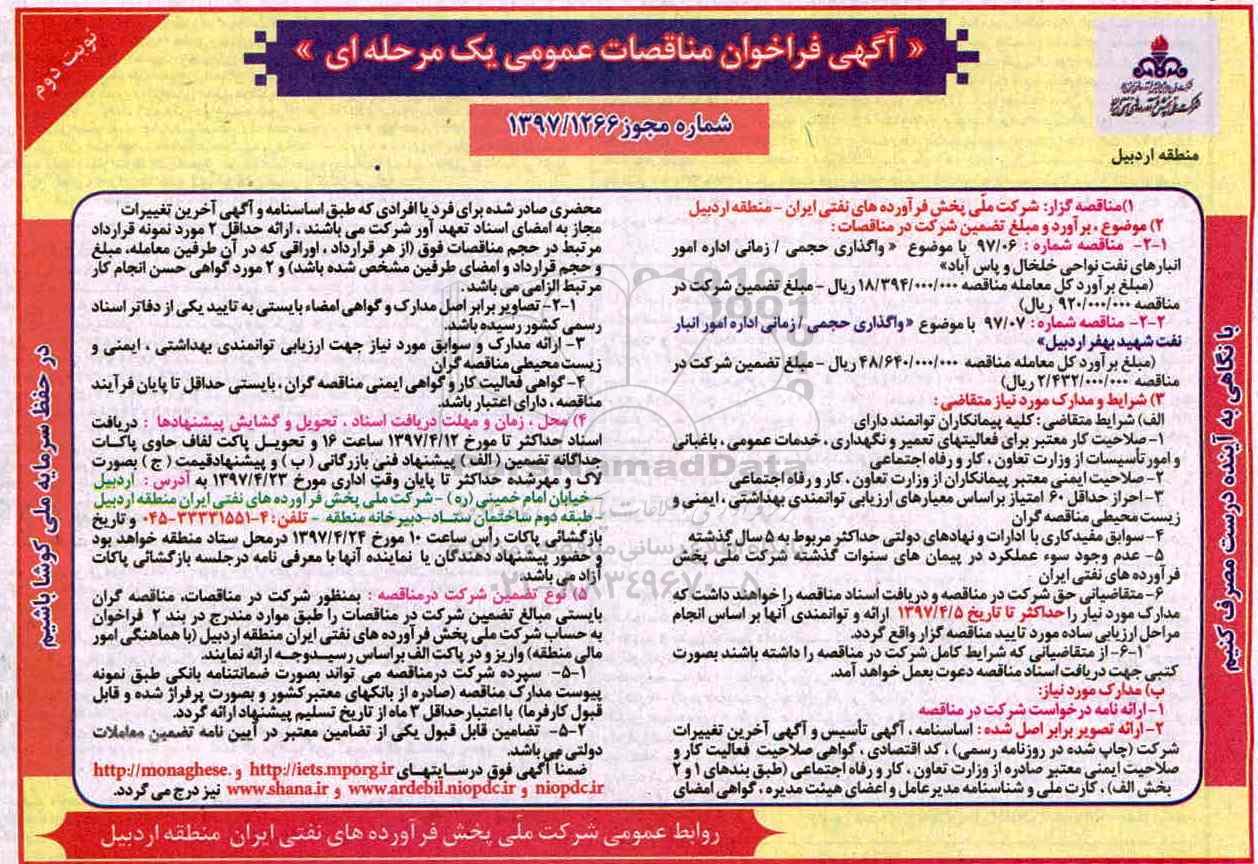 نوبت دوم
« آگهی فراخوان مناقصات عمومی یک مرحله ای »
شماره مجوز ۱۳۹۷/۱۲۶۶
منطقه اردبیل
با نگاهی به آینده درست مصرف کنیم
۱)مناقصه گزار: شرکت ملّی پخش فرآورده های نفتی ایران -منطقه اردبیل
۲) موضوع ، برآورد و مبلغ تضمین شرکت در مناقصات :
۲-۱- مناقصه شماره : ۹۷/۰۶ با موضوع « واگذاری حجمی / زمانی اداره امور
انبارهای نفت نواحی خلخال و پاس آباد»
(مبلغ برآورد کل معامله مناقصه ۱۸/۳۹۴/۰۰۰/۰۰۰ ریال - مبلغ تضمین شرکت در
مناقصه ۹۲۰/۰۰۰/۰۰۰ ریال)
۲-۲- مناقصه شماره : ۹۷/۰۷ با موضوع «واگذاری حجمی / زمانی اداره امور انبار
نفت شهید بهفر اردبیل»
(مبلغ برآورد کل معامله مناقصه ۴۸/۶۴۰/۰۰۰/۰۰۰ ریال - مبلغ تضمین شرکت در
مناقصه ۲/۴۳۲/۰۰۰/۰۰۰ ریال)
۳) شرایط و مدارک مورد نیاز متقاضی :
الف) شرایط متقاضی : کلیه پیمانکاران توانمند دارای
۱- صلاحیت کار معتبر برای فعالیتهای تعمیر و نگهداری ، خدمات عمومی ، باغبانی
و امور تأسیسات از وزارت تعاون ، کار و رفاه اجتماعی
۲- صلاحیت ایمنی معتبر پیمانکاران از وزارت تعاون ، کار و رفاه اجتماعی
۳- احراز حداقل ۶۰ امتیاز براساس معیارهای ارزیابی توانمندی بهداشتی ، ایمنی و
زیست محیطی مناقصه گران
۴- سوابق مفیدکاری با ادارات و نهادهای دولتی حداکثر مربوط به ۵ سال گذشته
۵- عدم وجود سوء عملکرد در پیمان های سنوات گذشته شرکت ملی پخش
فرآورده های نفتی ایران
۶- متقاضیانی حق شرکت در مناقصه و دریافت اسناد مناقصه را خواهند داشت که
مدارک مورد نیاز را حداکثر تا تاریخ ۱۳۹۷/۴/۵ ارائه و توانمندی آنها بر اساس انجام
مراحل ارزیابی ساده مورد تایید مناقصه گزار واقع گردد.
۶-۱- از متقاضیانی که شرایط کامل شرکت در مناقصه را داشته باشند بصورت
کتبی جهت دریافت اسناد مناقصه دعوت بعمل خواهد آمد.
ب) مدارک مورد نیاز:
۱- ارائه نامه درخواست شرکت در مناقصه
۲- ارائه تصویر برابر اصل شده : اساسنامه ، آگهی تأسیس و آگهی آخرین تغییرات
شرکت (چاپ شده در روزنامه رسمی) ، کد اقتصادی ، گواهی صلاحیت فعالیت کار و
صلاحیت ایمنی معتبر صادره از وزارت تعاون ، کار و رفاه اجتماعی (طبق بندهای ۱ و ۲
بخش الف) ، کارت ملی و شناسنامه مدیرعامل و اعضای هیئت مدیره ، گواهی امضای
محضری صادر شده برای فرد یا افرادی که طبق اساسنامه و آگهی آخرین تغییرات
مجاز به امضای اسناد تعهد آور شرکت می باشند ، ارائه حداقل ۲ مورد نمونه قرارداد
مرتبط در حجم مناقصات فوق (از هر قرارداد ، اوراقی که در آن طرفین معامله، مبلغ
و حجم قرارداد و امضای طرفین مشخص شده باشد) و ۲ مورد گواهی حسن انجام کار
مرتبط الزامی می باشد.
۲-۱- تصاویر برابر اصل مدارک و گواهی امضاء بایستی به تایید یکی از دفاتر اسناد
رسمی کشور رسیده باشد.
۳- ارائه مدارک و سوابق مورد نیاز جهت ارزیابی توانمندی بهداشتی ، ایمنی و
زیست محیطی مناقصه گران
۴-گواهی فعالیت کار و گواهی ایمنی مناقصه گران ، بایستی حداقل تا پایان فرآیند
مناقصه ، دارای اعتبار باشد.
۴) محل ، زمان و مهلت دریافت اسناد ، تحویل و گشایش پیشنهادها : دریافت
اسناد حداکثر تا مورخ ۱۳۹۷/۴/۱۲ ساعت ۱۶ و تحویل پاکت لفاف حاوی پاکات
جداگانه تضمین (الف) پیشنهاد فنی بازرگانی (ب) و پیشنهادقیمت (ج) بصورت
لاک و مهرشده حداکثر تا پایان وقت اداری مورخ ۱۳۹۷/۴/۲۳ به آدرس : اردبیل
- خیابان امام خمینی (ره) -شرکت ملی پخش فرآورده های نفتی ایران منطقه اردبیل
- طبقه دوم ساختمان ستاد-دبیرخانه منطقه - تلفن: ۴-۳۳۳۳۱۵۵۱-۰۴۵ و تاریخ
بازگشائی پاکات رأس ساعت ۱۰ مورخ ۱۳۹۷/۴/۲۴ درمحل ستاد منطقه خواهد بود
و حضور پیشنهاد دهندگان یا نماینده آنها با معرفی نامه درجلسه بازگشائی پاکات
آزاد می باشد.
۵) نوع تضمین شرکت درمناقصه : بمنظور شرکت در مناقصات، مناقصه گران
بایستی مبالغ تضمین شرکت در مناقصات را طبق موارد مندرج در بند ۲ فراخوان
به حساب شرکت ملی پخش فرآورده های نفتی ایران منطقه اردبیل (با هماهنگی امور
مالی منطقه) واریز و در پاکت الف براساس رسیدوجه ارائه نمایند.
۵-۱- سپرده شرکت درمناقصه می تواند بصورت ضمانتنامه بانکی طبق نمونه
پیوست مدارک مناقصه (صادره از بانکهای معتبرکشور و بصورت پرفراژ شده و قابل
قبول کارفرما) با اعتبارحداقل ۳ ماه از تاریخ تسلیم پیشنهاد ارائه گردد.
۵-۲- تضامین قابل قبول یکی از تضامین معتبر در آیین نامه تضمین معاملات
دولتی می باشد.
ضمناً آگهی فوق درسایتهای http://iets.mporg.ir و http://monaghese.
niopdc.ir و www.ardebil.niopdc.ir و www.shana.ir نیز درج می گردد.
در حفظ سرمایه ملی کوشا باشیم
روابط عمومی شرکت ملّی پخش فرآورده های نفتی ایران منطقه اردبیل